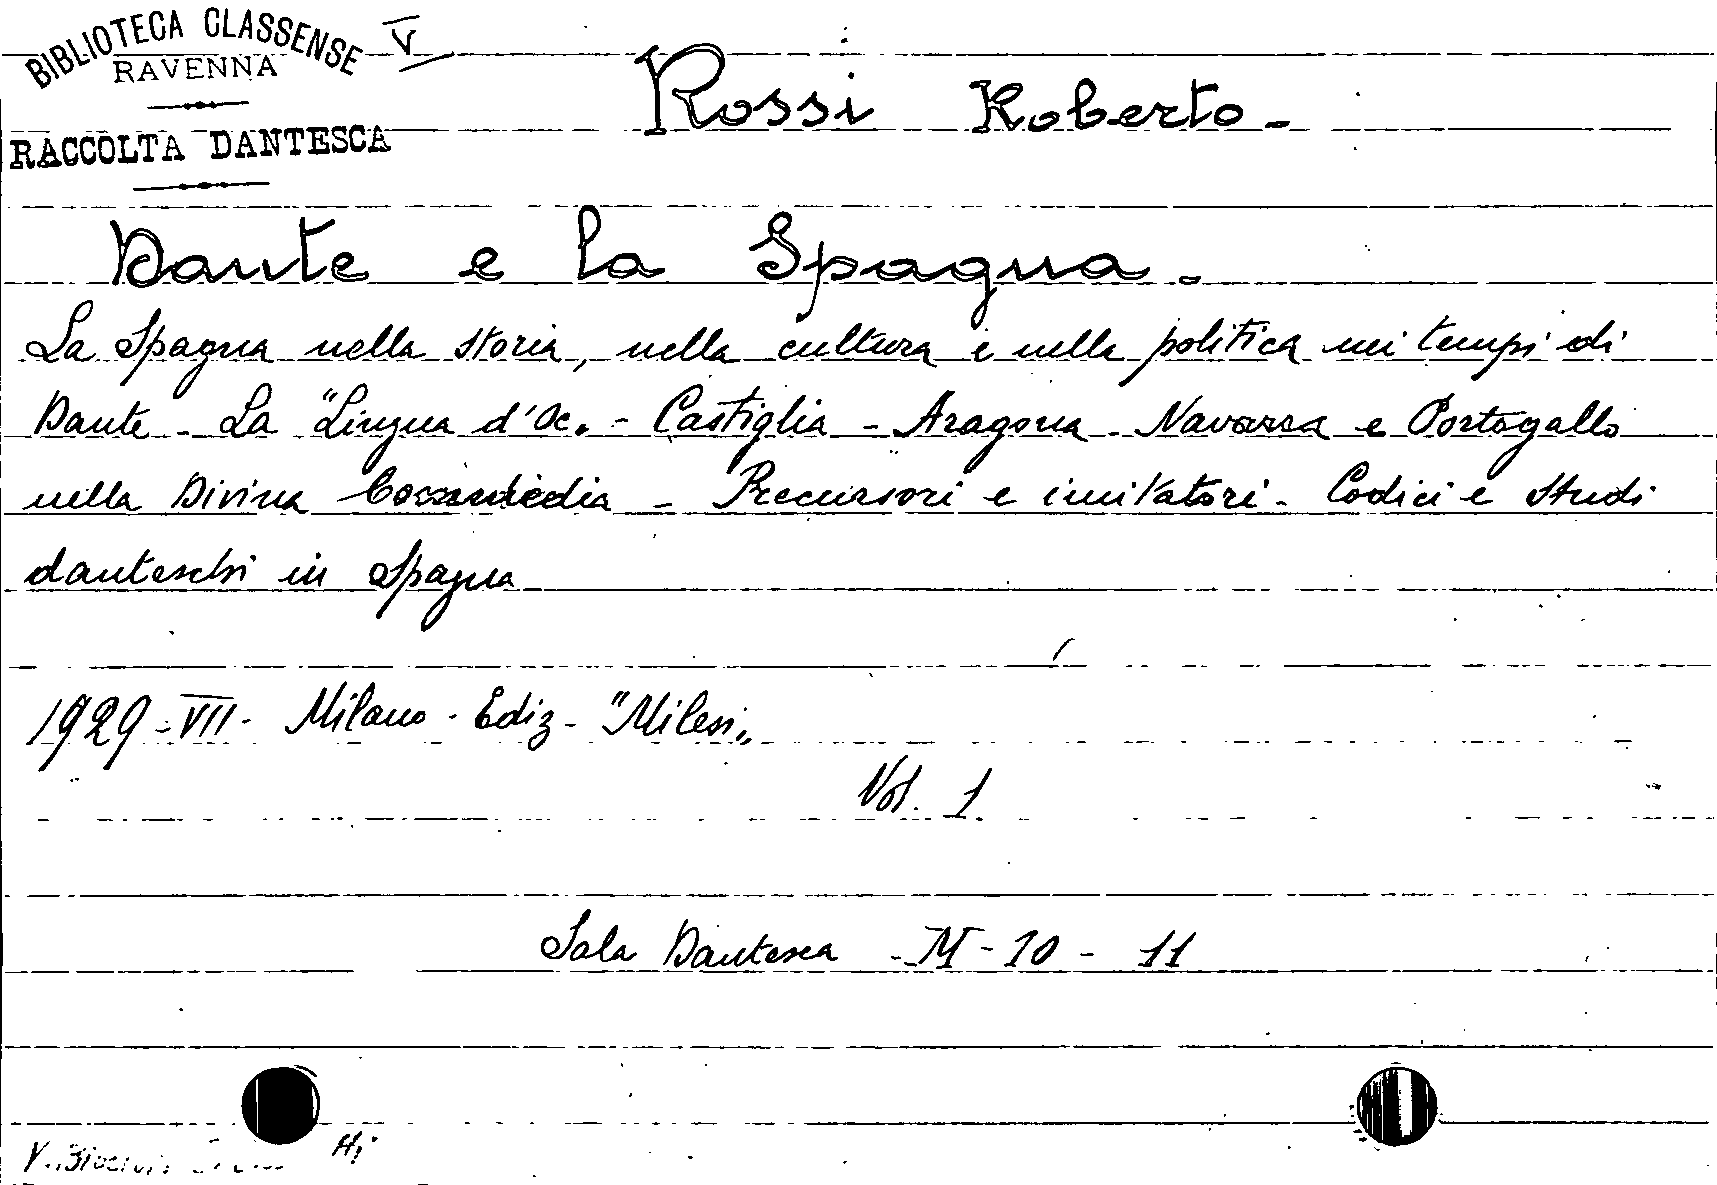 BIBLIOTECA CLASSENSE V
RAVENNA
RACCOLTA DANTESCA
Rossi Roberto.
Dante e la Spagna.
La Spagna nella storia, nella cultura e nella politica nei tempi di
Dante - La "Lingua d'Oc„ - Castiglia - Aragona - Navarra e Portogallo
nella Divina Commedia - Precursori e imitatori - Codici e studi
danteschi in Spagna
1929 - VII - Milano - Ediz - "Milesi„
Vol. 1
Sala Dantesca - M - 10 - 11